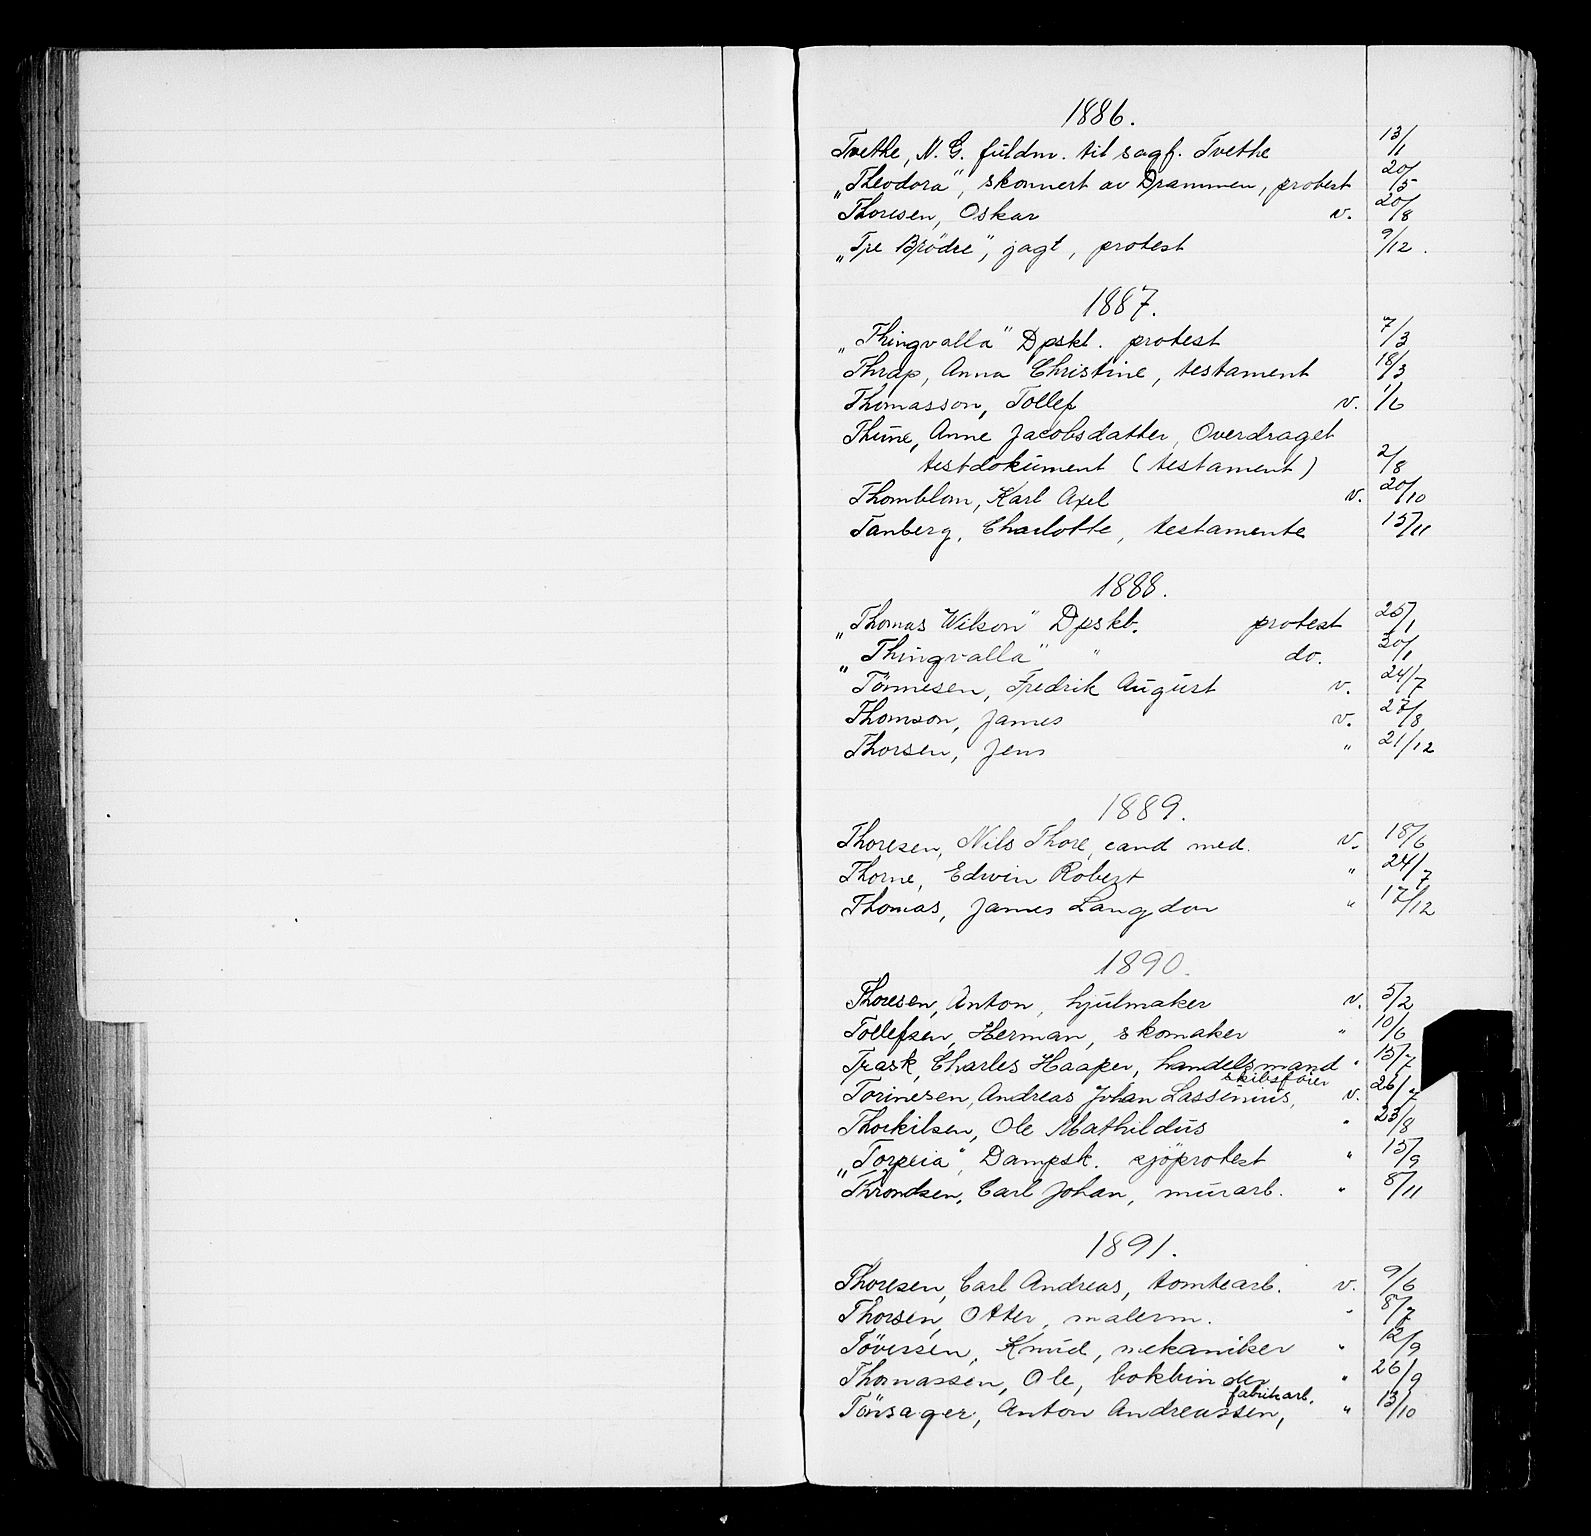 1886.
Tvethe, N. G. fuldm. til sagf. Tvethe 13/1
„Theodora", skonnert av Drammen, protest 20/5
Thoresen, Oskar v. 20/8
„Tre Brödre", jagt, protest 9/12.
1887.
„Thingvalla" Dpskt. protest 7/3
Thrap, Anna Christine, testament 18/3
Thomasson, Tollef v. 1/6
Thune, Anne Jacobsdatter, Overdraget
testdokument (testament) 2/8
Thomblom, Karl Axel v. 20/10
Tanberg, Charlotte, testamente 15/11
1888.
„Thomas Wilson" Dpskt. protest 25/1
„Thingvalla" " do. 30/1
Tönnesen, Fredrik August v. 24/7
Thomson, James v. 27/8
Thorsen, Jens " 21/12
1889.
Thoresen, Nils Thore, cand med. v. 18/6
Thorne, Edwin Robert " 24/7
Thomas, James Langdon " 17/12
1890.
Thoresen, Anton, hjulmaker v. 5/2
Tollefsen, Herman, skomaker " 10/6
Trask, Charles Haaper, handelsmand " 15/7
skibsfører
Torinesen, Andreas Johan Lassenius, v. 26/7
Thorkilsen, Ole Mathildus " 23/8
„Torpeia", Dampsk. sjöprotest " 15/9
Throndsen, Carl Johan, murarb. " 8/11
1891.
Thoresen, Carl Andreas, tomtearb. v. 9/6
Thorsen, Otter, malerm. " 8/7
Töversen, Knud, mekaniker " 12/9
Thomassen, Ole, bokbinder " 26/9
fabrikarb.
Tönsager, Anton Andreassen, " 13/10